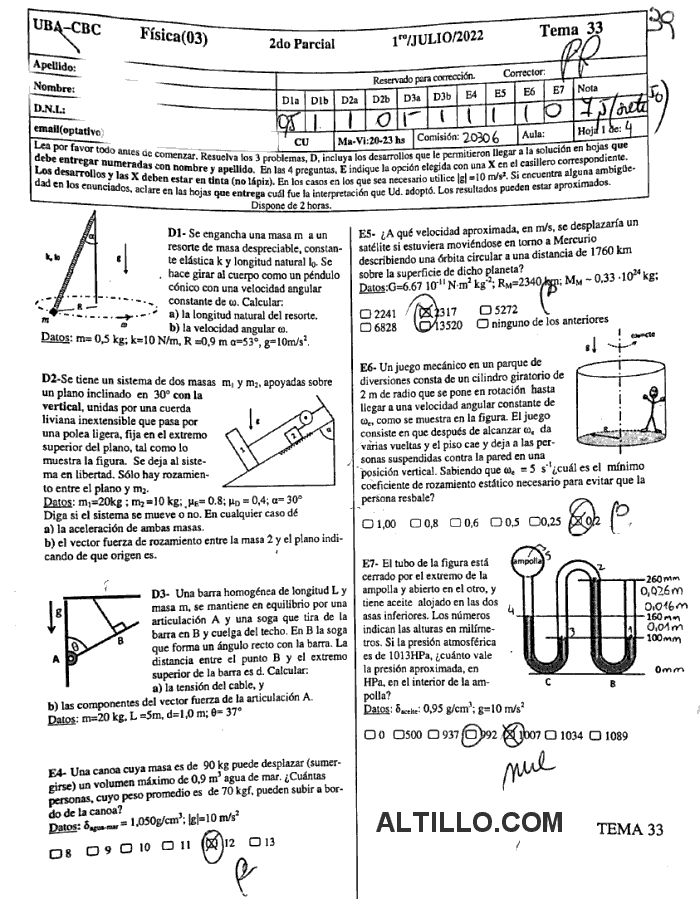 UBA-CBC Física(03) 2do Parcial 1ro/JULIO/2022 Tema 33
39
Apellido:
Reservado para corrección. Corrector:
Nombre:
D1a D1b D2a D2b D3a D3b E4 E5 E6 E7 Nota
D.N.I.:
email(optativo)
CU Ma-Vi:20-23 hs Comisión: 20306 Aula: Hoja 1 de: 4
Lea por favor todo antes de comenzar. Resuelva los 3 problemas, D, incluya los desarrollos que le permitieron llegar a la solución en hojas que
debe entregar numeradas con nombre y apellido. En las 4 preguntas, E indique la opción elegida con una X en el casillero correspondiente.
Los desarrollos y las X deben estar en tinta (no lápiz). En los casos en los que sea necesario utilice |g| =10 m/s². Si encuentra alguna ambigüe-
dad en los enunciados, aclare en las hojas que entrega cuál fue la interpretación que Ud. adoptó. Los resultados pueden ser aproximados.
Dispone de 2 horas.
D1- Se engancha una masa m a un
resorte de masa despreciable, constan-
te elástica k y longitud natural l₀. Se
hace girar al cuerpo como un péndulo
cónico con una velocidad angular
constante de ω. Calcular:
a) la longitud natural del resorte.
b) la velocidad angular ω.
Datos: m= 0,5 kg; k=10 N/m, R =0,9 m α=53°, g=10m/s².
k, l₀
α
g
R
m
ω
D2-Se tiene un sistema de dos masas m₁ y m₂, apoyadas sobre
un plano inclinado en 30° con la
vertical, unidas por una cuerda
liviana inextensible que pasa por
una polea ligera, fija en el extremo
superior del plano, tal como lo
muestra la figura. Se deja al siste-
ma en libertad. Sólo hay rozamien-
to entre el plano y m₂.
Datos: m₁=20kg ; m₂ =10 kg; μE= 0.8; μD = 0,4; α= 30°
Diga si el sistema se mueve o no. En cualquier caso dé
a) la aceleración de ambas masas.
b) el vector fuerza de rozamiento entre la masa 2 y el plano indi-
cando de que origen es.
g
1
2
α
D3- Una barra homogénea de longitud L y
masa m, se mantiene en equilibrio por una
articulación A y una soga que tira de la
barra en B y cuelga del techo. En B la soga
que forma un ángulo recto con la barra. La
distancia entre el punto B y el extremo
superior de la barra es d. Calcular:
a) la tensión del cable, y
b) las componentes del vector fuerza de la articulación A.
Datos: m=20 kg, L =5m, d=1,0 m; θ= 37°
g
θ
B
A
E4- Una canoa cuya masa es de 90 kg puede desplazar (sumer-
girse) un volumen máximo de 0,9 m³ agua de mar. ¿Cuántas
personas, cuyo peso promedio es de 70 kgf, pueden subir a bor-
do de la canoa?
Datos: δagua-mar = 1,050g/cm³; |g|=10 m/s²
☐ 8 ☐ 9 ☐ 10 ☐ 11 ☒ 12 ☐ 13
E5- ¿A qué velocidad aproximada, en m/s, se desplazaría un
satélite si estuviera moviéndose en torno a Mercurio
describiendo una órbita circular a una distancia de 1760 km
sobre la superficie de dicho planeta?
Datos:G=6.67 10⁻¹¹ N·m² kg⁻²; RM=2340 km; MM ~ 0,33 ·10²⁴ kg;
☐ 2241 ☒ 2317 ☐ 5272
☐ 6828 ☐ 13520 ☐ ninguno de los anteriores
E6- Un juego mecánico en un parque de
diversiones consta de un cilindro giratorio de
2 m de radio que se pone en rotación hasta
llegar a una velocidad angular constante de
ωc, como se muestra en la figura. El juego
consiste en que después de alcanzar ωc da
varias vueltas y el piso cae y deja a las per-
sonas suspendidas contra la pared en una
posición vertical. Sabiendo que ωc = 5 s⁻¹¿cuál es el mínimo
coeficiente de rozamiento estático necesario para evitar que la
persona resbale?
☐ 1,00 ☐ 0,8 ☐ 0,6 ☐ 0,5 ☐0,25 ☒0,2
g
R
E7- El tubo de la figura está
cerrado por el extremo de la
ampolla y abierto en el otro, y
tiene aceite alojado en las dos
asas inferiores. Los números
indican las alturas en milíme-
tros. Si la presión atmosférica
es de 1013HPa, ¿cuánto vale
la presión aproximada, en
HPa, en el interior de la am-
polla?
Datos: δaceite: 0,95 g/cm³; g=10 m/s²
☐ 0 ☐500 ☐ 937 ☐992 ☒ 1007 ☐ 1034 ☐ 1089
ampolla
5
2
260mm
0,026m
0,016m
4
160 mm
0,01m
3
1
100mm
0mm
C B
ALTILLO.COM
TEMA 33